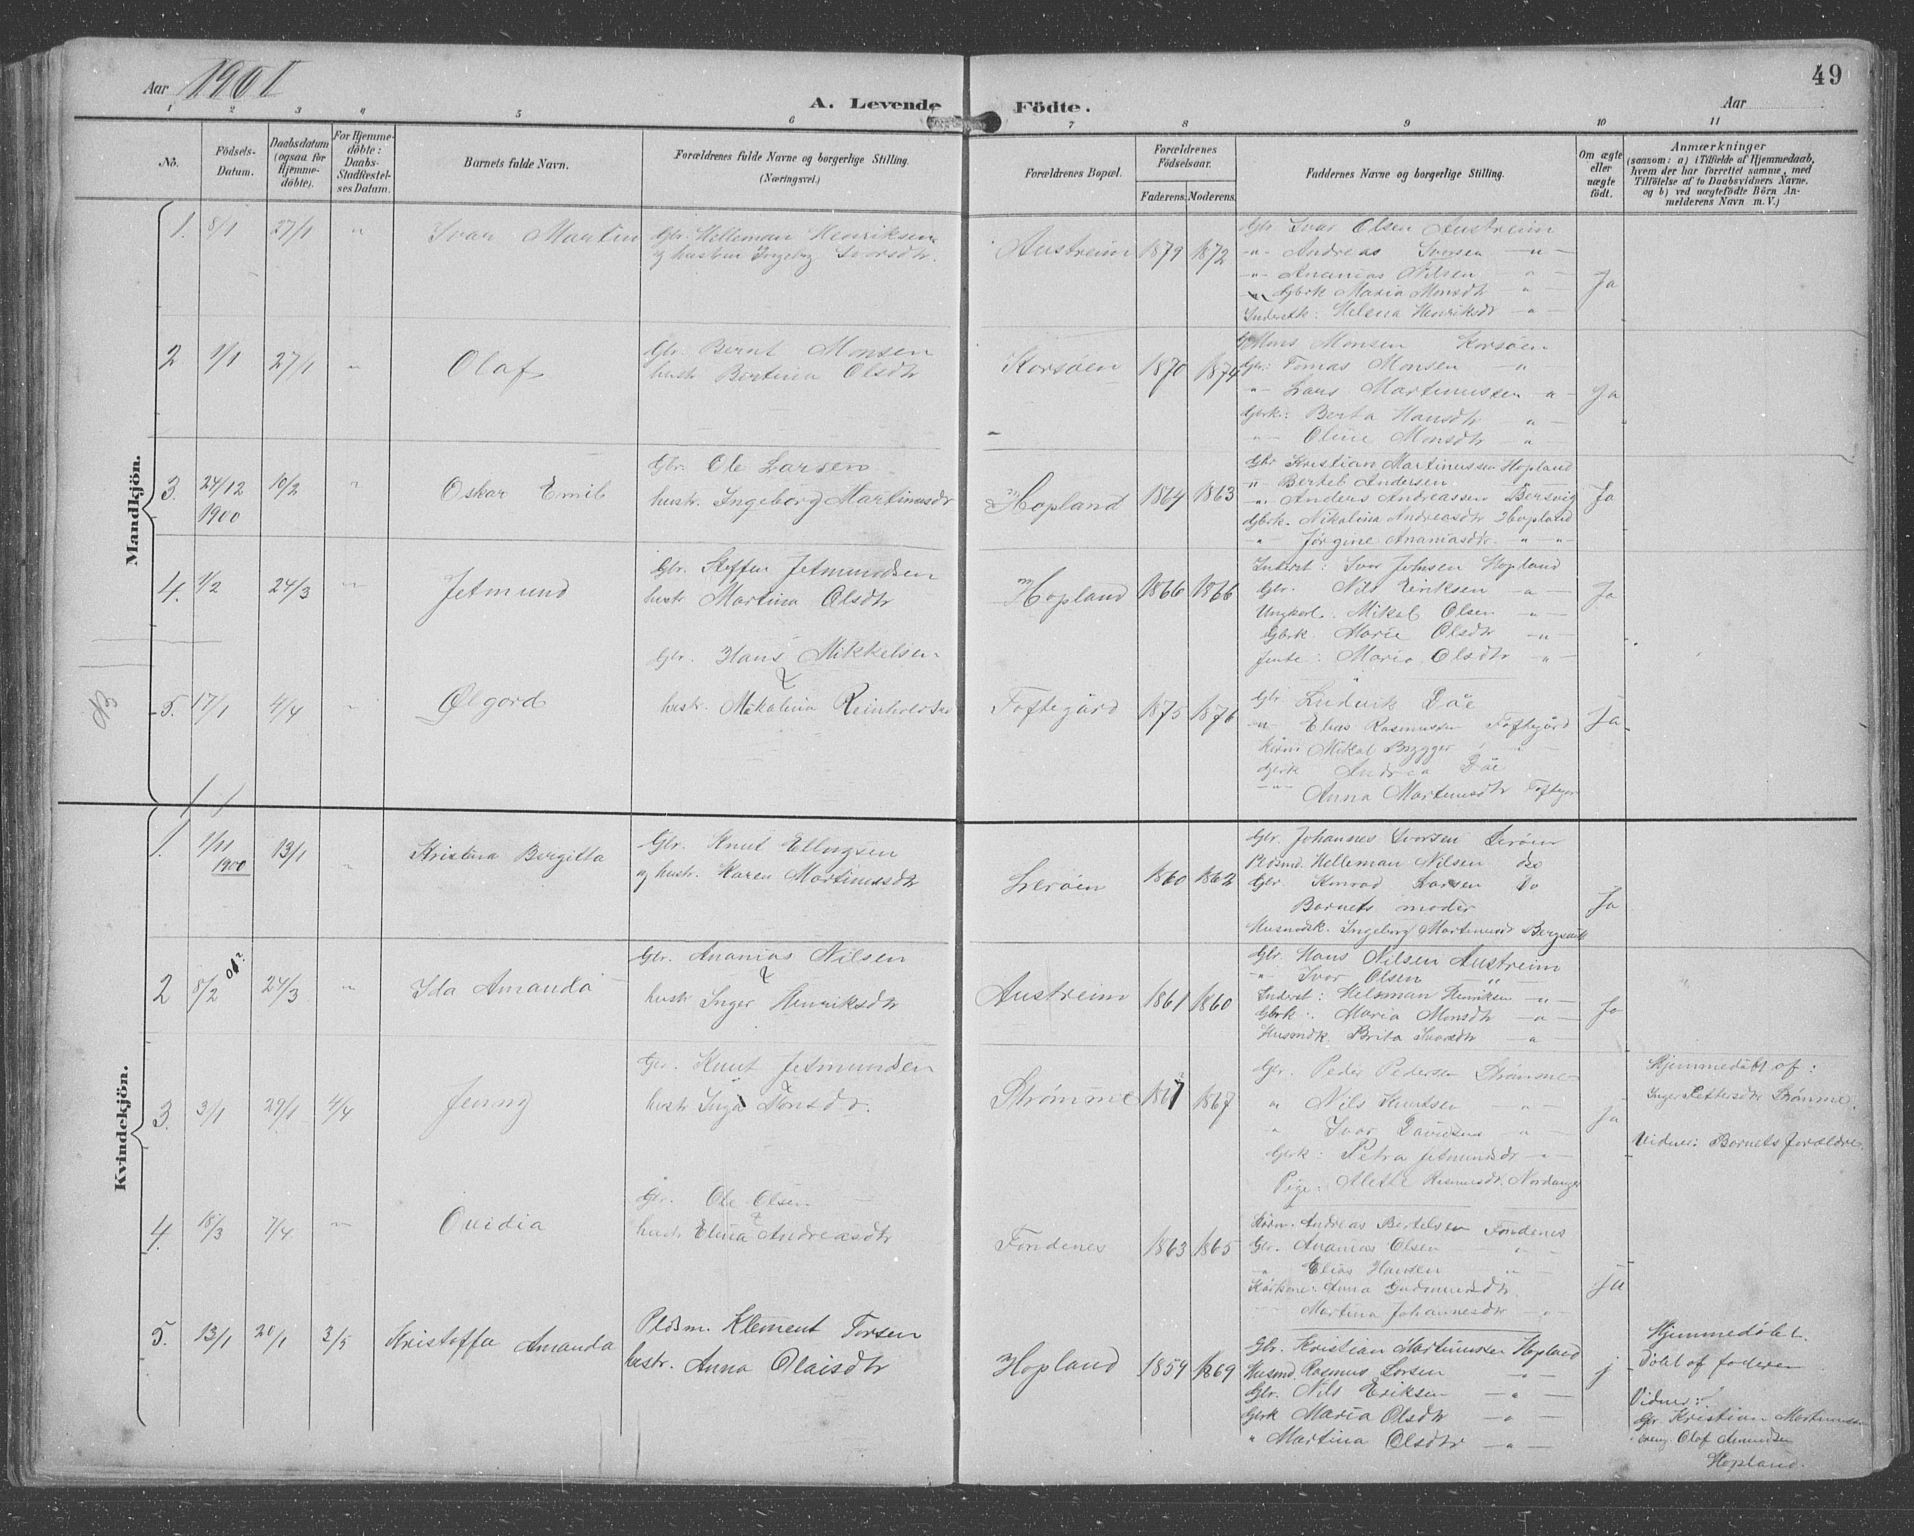 Aar 1901
A. Levende Födte.
Aar
49
1 2 3 4 5 6 7 8 9 10 11
No.
Födsels-Datum.
Daabsdatum (ogsaa for Hjemmedöbte).
For Hjemmedöbte: Daabs-Stadfæstelses Datum.
Barnets fulde Navn.
Forældrenes fulde Navne og borgerlige Stilling. (Næringsvei.)
Forældrenes Bopæl.
Forældrenes Födselsaar.
Faderens. Moderens.
Faddernes Navne og borgerlige Stilling.
Om ægte eller uægte födt.
Anmærkninger
(saasom: a) i Tilfælde af Hjemmedaab, hvem der har forrettet samme, med Tilföielse af to Daabsvidners Navne. og b) ved uægtefödte Börn Anmelderens Navn m. V.)
Mandkjön.
1. 8/1 27/1 " Ivar Martin
Gbr. Helleman Henriksen
og hustru Ingebg Ivarsdtr.
Austreim 1879 1872
Gbr Ivar Olsen Austreim
" Andreas Ivarsen "
" Ananias Nilsen "
" Gbrk Maria Monsdtr "
Inderstk: Helena Henriksdr "
Ja
2 1/1 27/1 " Olaf
Gbr. Bernt Monsen
hustr Bertina Olsdtr
Korsøen 1870 1874
Mons Monsen Korsøen
Gbr: Tomas Monsen "
" Lars Martinussen "
Gbrk: Berta Hansdtr "
" Oline Monsdtr "
Ja
3. 24/12 1900 10/2 " Oskar Emil
Gbr. Ole Larsen
hustr. Ingeborg Martinusdr
Hopland 1864 1863
Gbr Kristian Martinussen Hopland
" Bertel Andersen
" Anders Andreassen Bersvig
Gbrk. Nikolina Andreasdtr Hopland
" Jørgine Ananiasdtr " "
Ja
4. 1/2 24/3 " Jetmund
Gbr. Steffen Jetmundsen
hustr Martina Olsdtr
Hopland 1866 1866
Inderst: Ivar Johnsen Hopland
Gbr. Nils Eriksen "
Ungkarl. Mikal Olsen "
Gbrk Marie Olsdtr "
Jente: Maria Olsdtr "
Ja
NB
5. 17/1 4/4 " Ølgord
Gbr. Hans Mikkelsen
&
hustr. Mikalina Reinholdsdr
Toftegård 1875 1876
Gbr Ludvik Døe
" Elias Rasmussen Toftegård
Mikal Brygger "
Gbrk Andrea Døe
" Anna Martinusdtr Toftegår
Ja
Kvindekjön.
1. 1/11 1900 13/1 " Kristina Bergitta
Gbr. Knut Ellingsen
og hustr. Karen Martinusdtr
Lerøen 1860 1862
Gbr. Johannes Ivarsen Lerøen
Pldsmd. Helleman Nilsen do
Gbr Konrad Larsen Do
Barnets moder
Husmdsk. Ingeborg Martinusdr Bergsvik
Ja
2 8/2 24/3 " Ida Amanda
Gbr. Ananias Nilsen
&
hustr Inger Henriksdtr
Austreim 1861 1860
Gbr Hans Nilsen Austreim
" Ivar Olsen "
Inderst: Helleman Henriksen "
Gbrk: Maria Monsdtr "
Husmdk Brita Ivarsdtr "
Ja
3. 3/1 29/1 4/4 Jenny
Gbr. Knut Jetmundsen
hustr Inga Tonsdr.
Strømme 1867 1867
Gbr. Peder Pedersen Strømme
" Nils Knutsen "
" Ivar Davidsen "
Gbrk: Petra Jetmundsdr "
Pige: Alette Rasmusdr. Nordanger
Ja
Hjemmedøbt af:
Inger Pettersdtr Strømme.
Vidner: Barnets forældre
4. 18/3 7/4 " Ovidia
Gbr. Ole Olsen
&
hustr Elina Andreasdtr
Fondenes 1863 1865
Andreas Bertelsen Fondenes
Gbr. Ananias Olsen "
" Elias Hansen "
Anna Gudmundsdtr
Martina Johannesdtr "
Ja
5. 13/1 20/1 3/5 Kristoffa Amanda
Pldsm. Klement Torsen
hustr. Anna Olaisdtr
Hopland 1859 1869
Gbr. Kristian Martinussen Hopland
Husmd. Rasmus Larsen "
Gbr. Nils Eriksen "
Gbrk Maria Olsdtr "
" Martina Olsdtr "
j
Hjemmedøbt.
Døbt af faderen
Vidner:
Gbr Kristian Martinussen
Olaf
Hopland.